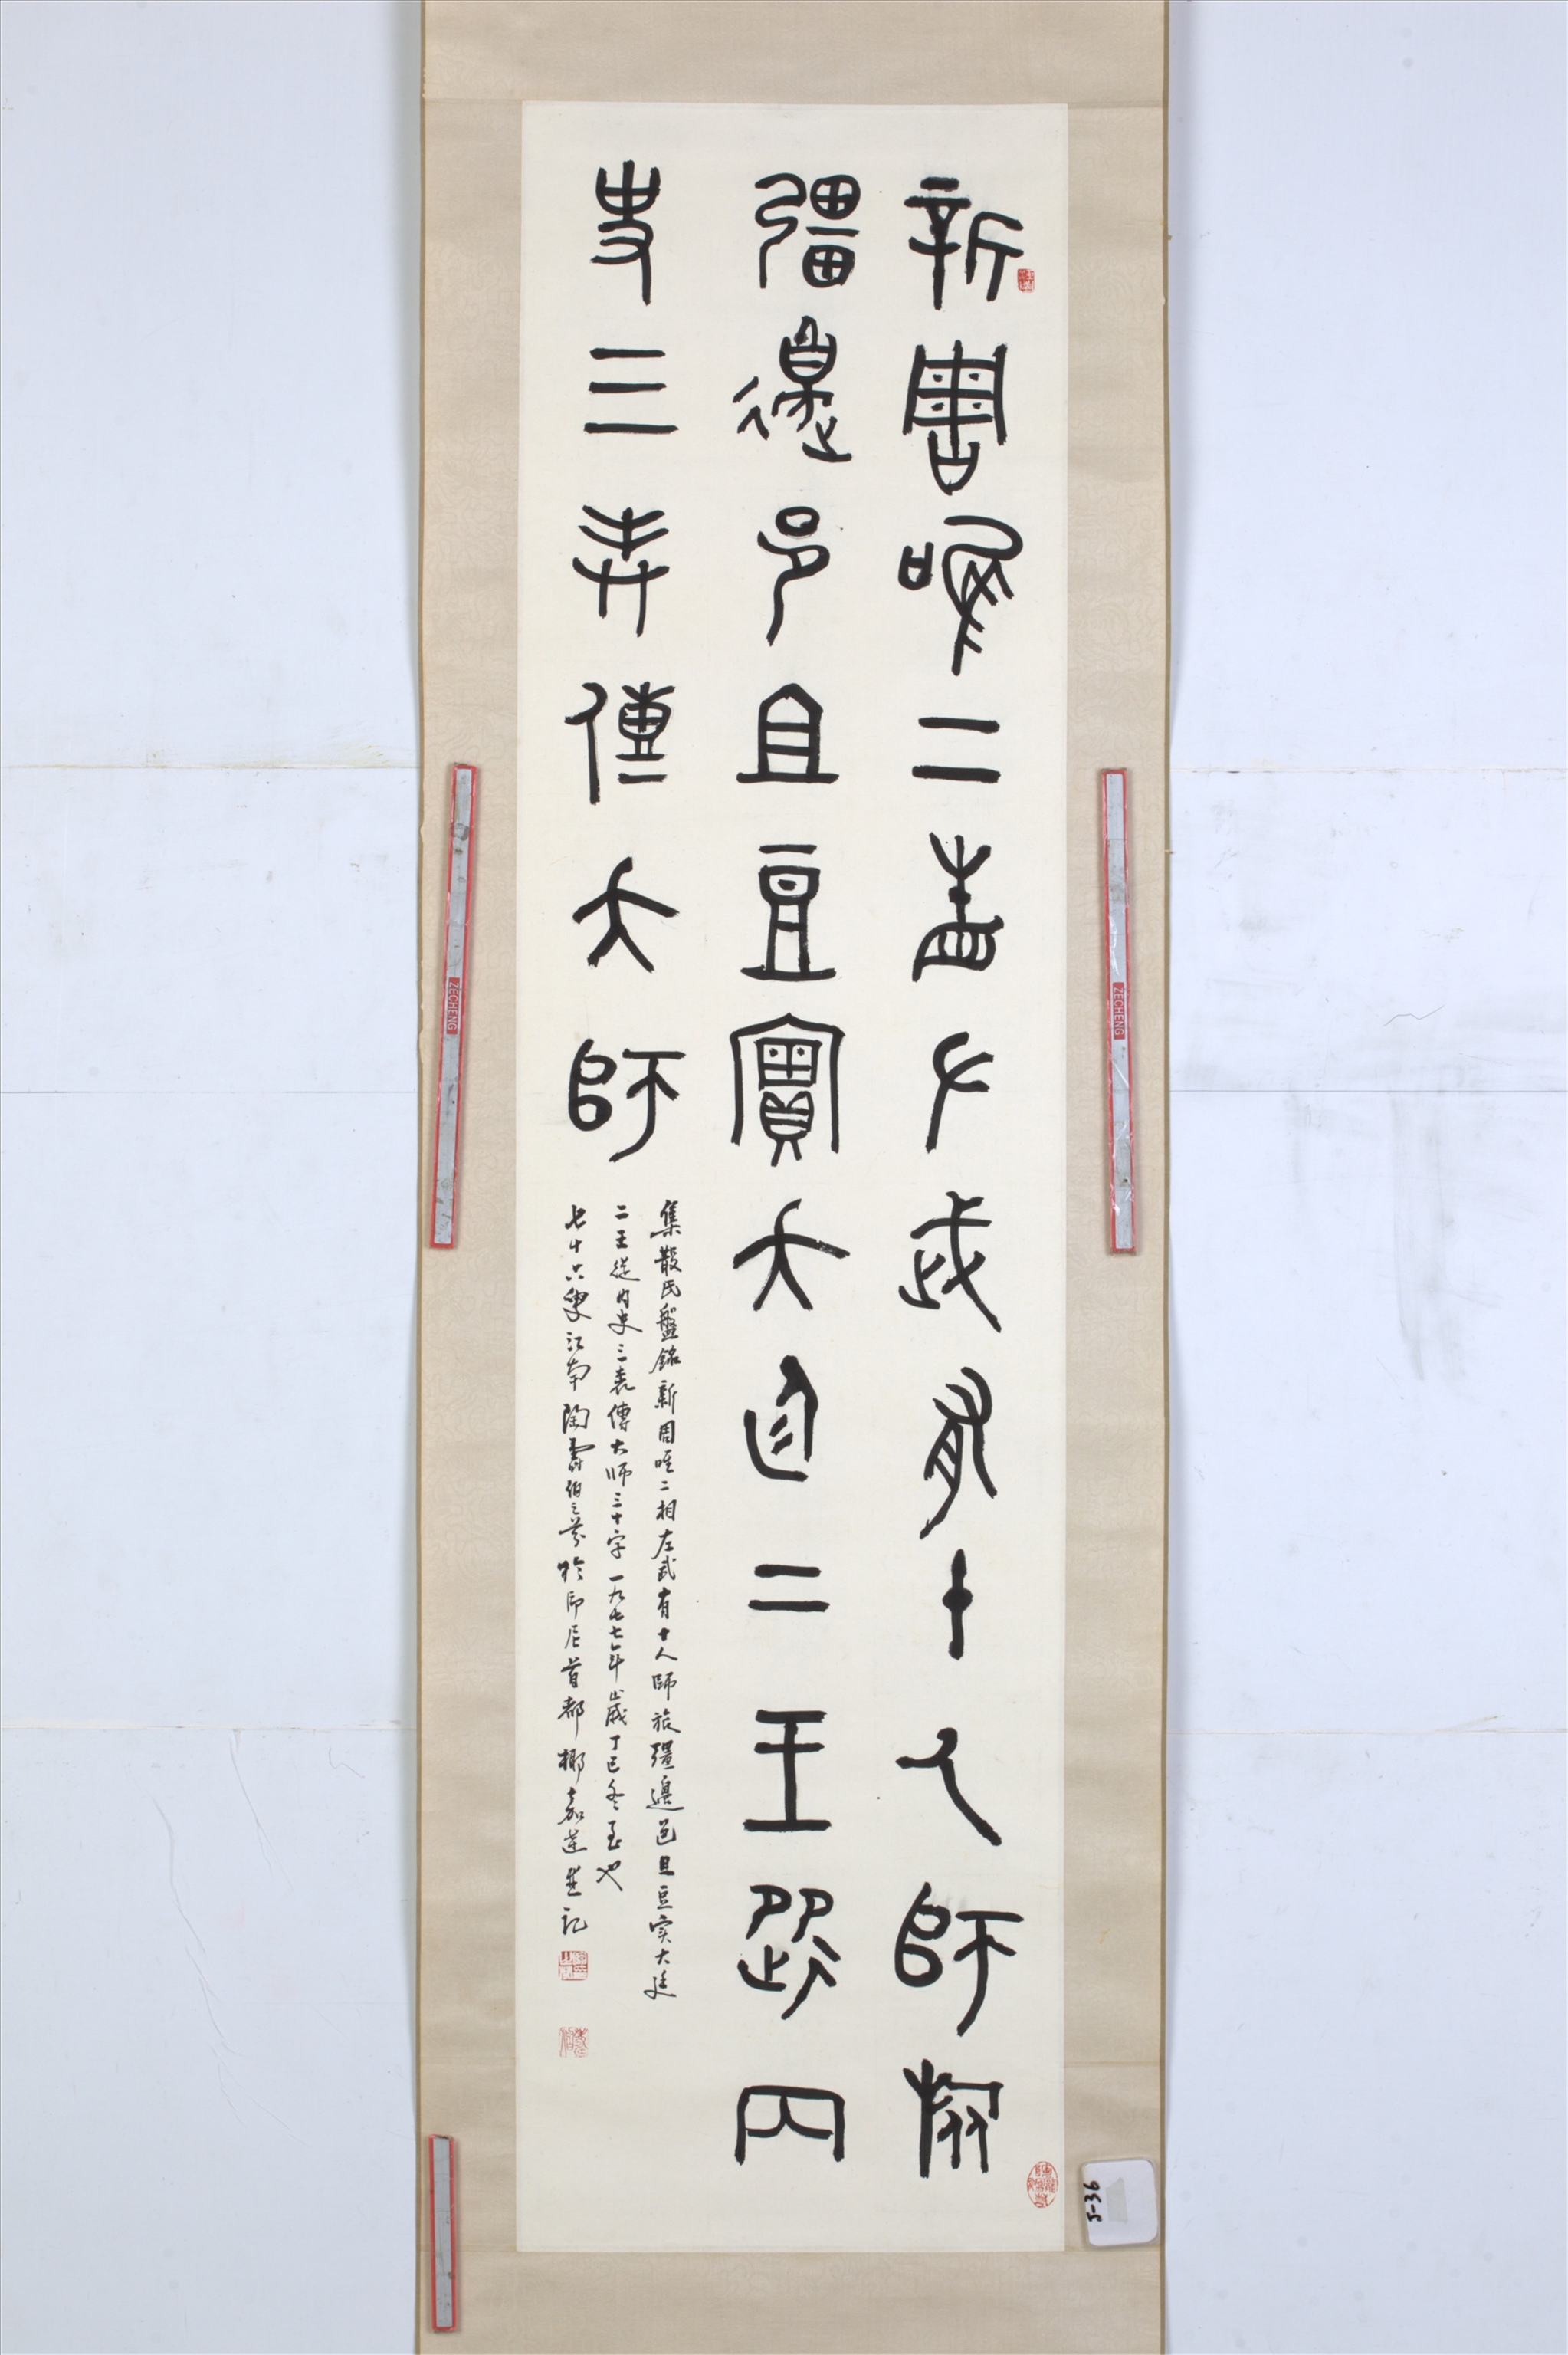 新周唯二相左武有十人師旅
彊邊邑且豆實大廷二王從內
史三表傳大師
集散氏盤銘新周唯二相左武有十人師旅彊邊邑且豆实大廷
二王從内史三表傳大师三十字一九七七年歲丁巳冬至也
七十六叟江南陶壽伯之芬於印尼首都椰嘉達並記
ZECHENG
ZECHENG
J-36